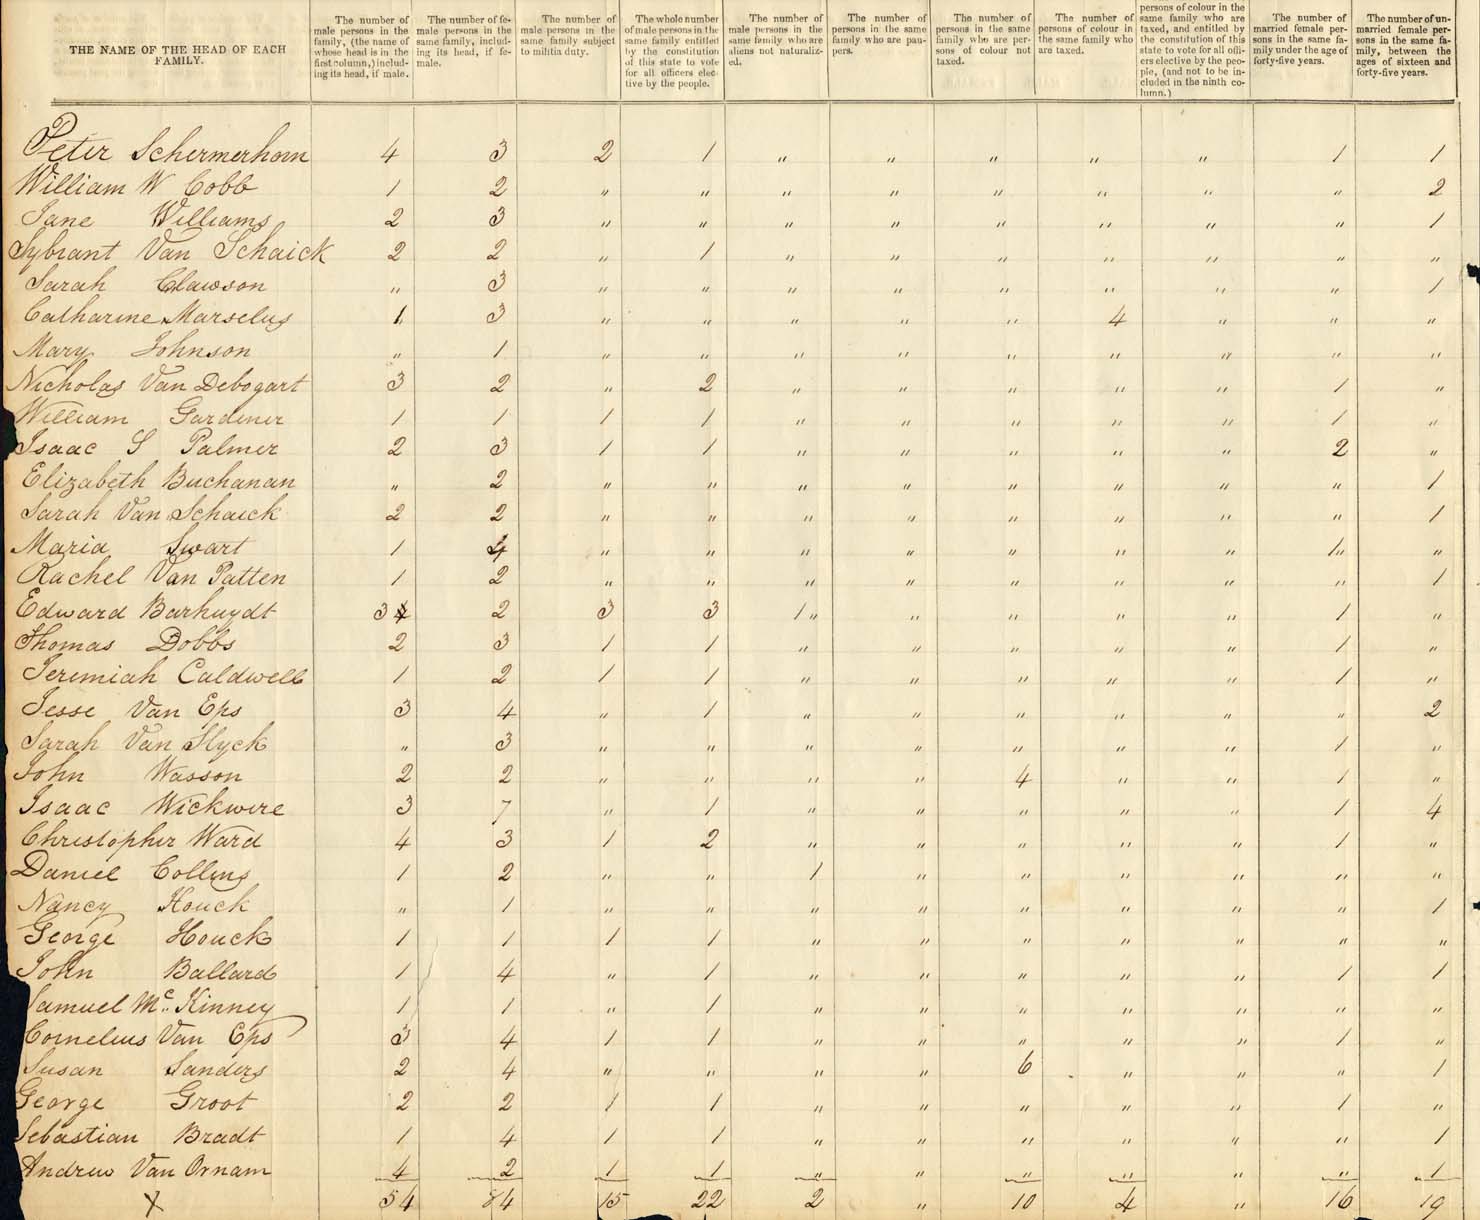 THE NAME OF THE HEAD OF EACH FAMILY.
The number of male persons in the family, (the name of whose head is in the first column,) including its head, if male.
The number of female persons in the same family, including its head, if female.
The number of male persons in the same family subject to militia duty.
The whole number of male persons in the same family entitled by the constitution of this state to vote for all officers elective by the people.
The number of male persons in the same family who are aliens not naturalized.
The number of persons in the same family who are paupers.
The number of persons in the same family who are persons of colour not taxed.
The number of persons of colour in the same family who are taxed.
persons of colour in the same family who are taxed, and entitled by the constitution of this state to vote for all officers elective by the people, (and not to be included in the ninth column.)
The number of married female persons in the same family under the age of forty-five years.
The number of unmarried female persons in the same family, between the ages of sixteen and forty-five years.
Peter Schermerhorn 4 3 2 1 " " " " " 1 1
William W Cobb 1 2 " " " " " " " " 2
Jane Williams 2 3 " " " " " " " " 1
Sybrant Van Schaick 2 2 " 1 " " " " " " "
Sarah Clawson " 3 " " " " " " " " 1
Catharine Marselus 1 3 " " " " " 4 " " "
Mary Johnson " 1 " " " " " " " " "
Nicholas Van Debogart 3 2 " 2 " " " " " 1 "
William Gardiner 1 1 1 1 " " " " " 1 "
Isaac S Palmer 2 3 1 1 " " " " " 2 "
Elizabeth Buchanan " 2 " " " " " " " " 1
Sarah Van Schaick 2 2 " " " " " " " " 1
Maria Swart 1 4 " " " " " " " 1" "
Rachel Van Patten 1 2 " " " " " " " " 1
Edward Barhuydt 3 2 3 3 1" " " " " 1 "
Thomas Dobbs 2 3 1 1 " " " " " 1 "
Jeremiah Caldwell 1 2 1 1 " " " " " 1 "
Jesse Van Eps 3 4 " 1 " " " " " " 2
Sarah Van Slyck " 3 " " " " " " " 1 "
John Wasson 2 2 " " " " 4 " " 1 "
Isaac Wickwire 3 7 " 1 " " " " " 1 4
Christopher Ward 4 3 1 2 " " " " " 1 "
Daniel Collins 1 2 " " 1 " " " " " "
Nancy Houck " 1 " " " " " " " " 1
George Houck 1 1 1 1 " " " " " " "
John Ballard 1 4 " 1 " " " " " 1 1
Samuel Mc Kinney 1 1 " 1 " " " " " " "
Cornelius Van Eps 3 4 1 1 " " " " " 1 "
Susan Sanders 2 4 " " " " 6 " " " 1
George Groot 2 2 1 1 " " " " " 1 "
Sebastian Bradt 1 4 1 1 " " " " " " 1
Andrew Van Ornam 4 2 1 1 " " " " " " 1
X 54 84 15 22 2 " 10 4 " 16 19